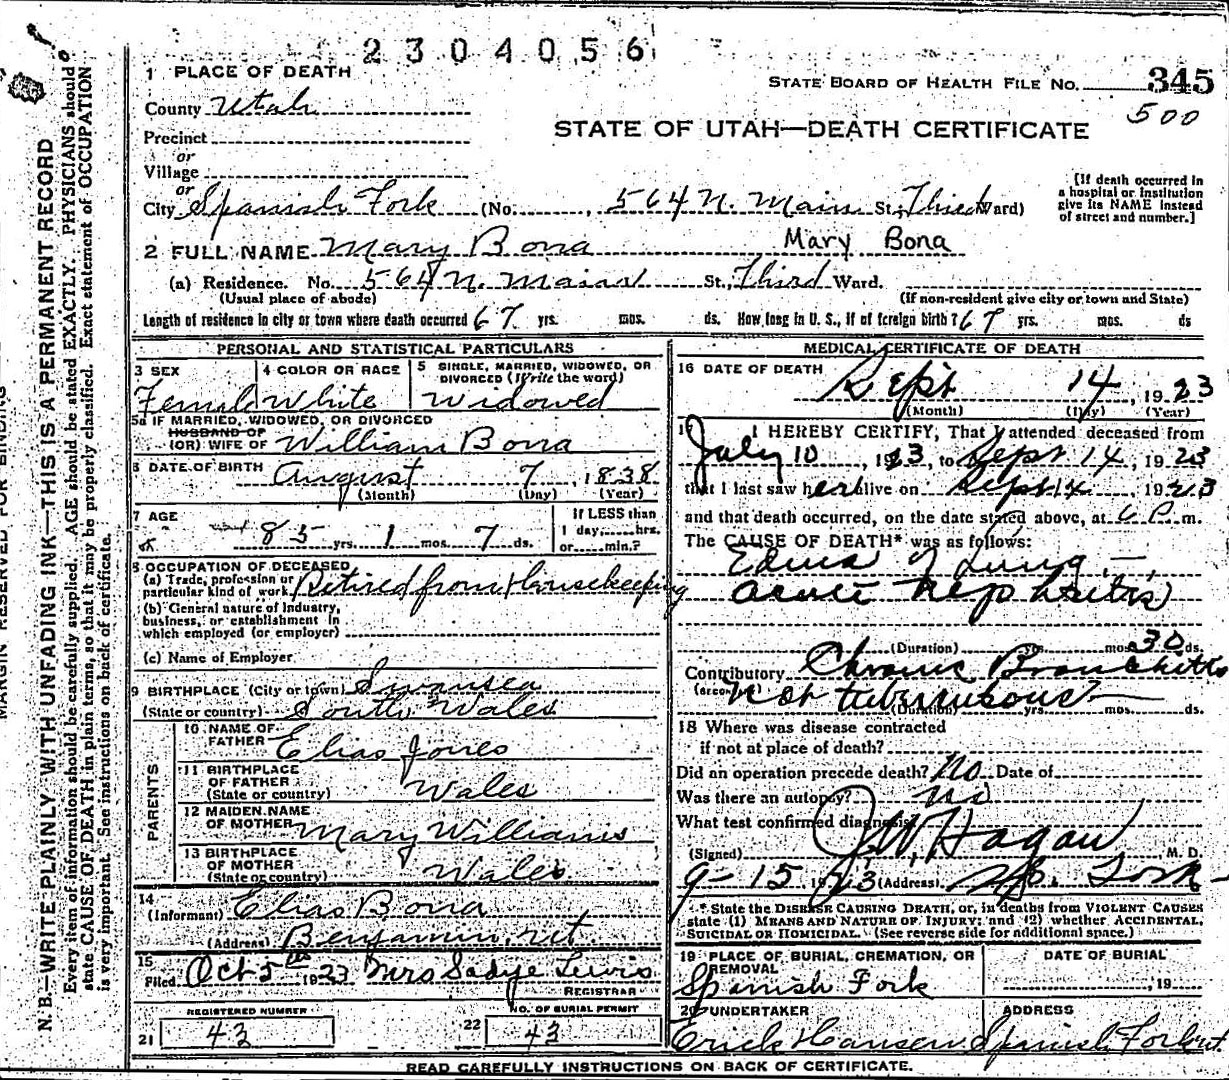 2304056
1 PLACE OF DEATH
STATE BOARD OF HEALTH FILE NO. 345
County Utah
500
STATE OF UTAH—DEATH CERTIFICATE
Precinct
or
Village
or
City Spanish Fork (No. , 564 N. Main St., Third Ward)
[If death occurred in
a hospital or institution
give its NAME instead
of street and number.]
2 FULL NAME Mary Bona Mary Bona
(a) Residence. No. 564 N. Main St., Third Ward.
(Usual place of abode) (If non-resident give city or town and State)
Length of residence in city or town where death occurred 67 yrs. mos. ds. How long in U. S., if of foreign birth? 67 yrs. mos. ds
PERSONAL AND STATISTICAL PARTICULARS
3 SEX
Female
4 COLOR OR RACE
White
5 SINGLE, MARRIED, WIDOWED, OR
DIVORCED (Write the word)
Widowed
5a IF MARRIED, WIDOWED, OR DIVORCED
HUSBAND OF
(OR) WIFE OF William Bona
6 DATE OF BIRTH August 7, 1838
(Month) (Day) (Year)
7 AGE
85 yrs. 1 mos. 7 ds.
If LESS than
1 day, hrs.
or min.?
8 OCCUPATION OF DECEASED
(a) Trade, profession or
particular kind of work Retired from Housekeeping
(b) General nature of Industry,
business, or establishment in
which employed (or employer)
(c) Name of Employer
9 BIRTHPLACE (City or town) Swansea
(State or country) South Wales
PARENTS
10 NAME OF
FATHER Elias Jones
11 BIRTHPLACE
OF FATHER
(State or country) Wales
12 MAIDEN NAME
OF MOTHER Mary Williams
13 BIRTHPLACE
OF MOTHER
(State or country) Wales
14
(Informant) Elias Bona
(Address) Benjamin, Ut.
15
Filed Oct 5th 1923 Mrs Sadye Lewis
REGISTRAR
REGISTERED NUMBER
21 43
NO. OF BURIAL PERMIT
22 43
MEDICAL CERTIFICATE OF DEATH
16 DATE OF DEATH
Sept 14, 1923
(Month) (Day) (Year)
17 I HEREBY CERTIFY, That I attended deceased from
July 10, 1923, to Sept 14, 1923
that I last saw her alive on Sept 14 1923
and that death occurred, on the date stated above, at 6 P. m.
The CAUSE OF DEATH* was as follows:
Edema of Lung —
acute Nephritis
(Duration) yrs. mos. 30 ds.
Contributory Chronic Bronchitis
not tuberculous?
(Duration) yrs. mos. ds.
18 Where was disease contracted
if not at place of death?
Did an operation precede death? No Date of
Was there an autopsy? no
What test confirmed diagnosis?
(Signed) J. W. Hagan M. D.
9-15 1923 (Address) Sp. Fork
* State the DISEASE CAUSING DEATH, or, in deaths from VIOLENT CAUSES
state (1) MEANS AND NATURE OF INJURY; and (2) whether ACCIDENTAL,
SUICIDAL OR HOMICIDAL. (See reverse side for additional space.)
19 PLACE OF BURIAL, CREMATION, OR
REMOVAL
Spanish Fork
DATE OF BURIAL
, 19
20 UNDERTAKER
Erick Hansen
ADDRESS
Spanish Fork ut.
READ CAREFULLY INSTRUCTIONS ON BACK OF CERTIFICATE.
MARGIN RESERVED FOR BINDING
N. B.—WRITE PLAINLY WITH UNFADING INK—THIS IS A PERMANENT RECORD
Every item of information should be carefully supplied. AGE should be stated EXACTLY. PHYSICIANS should
state CAUSE OF DEATH in plain terms, so that it may be properly classified. Exact statement of OCCUPATION
is very important. See instructions on back of certificate.